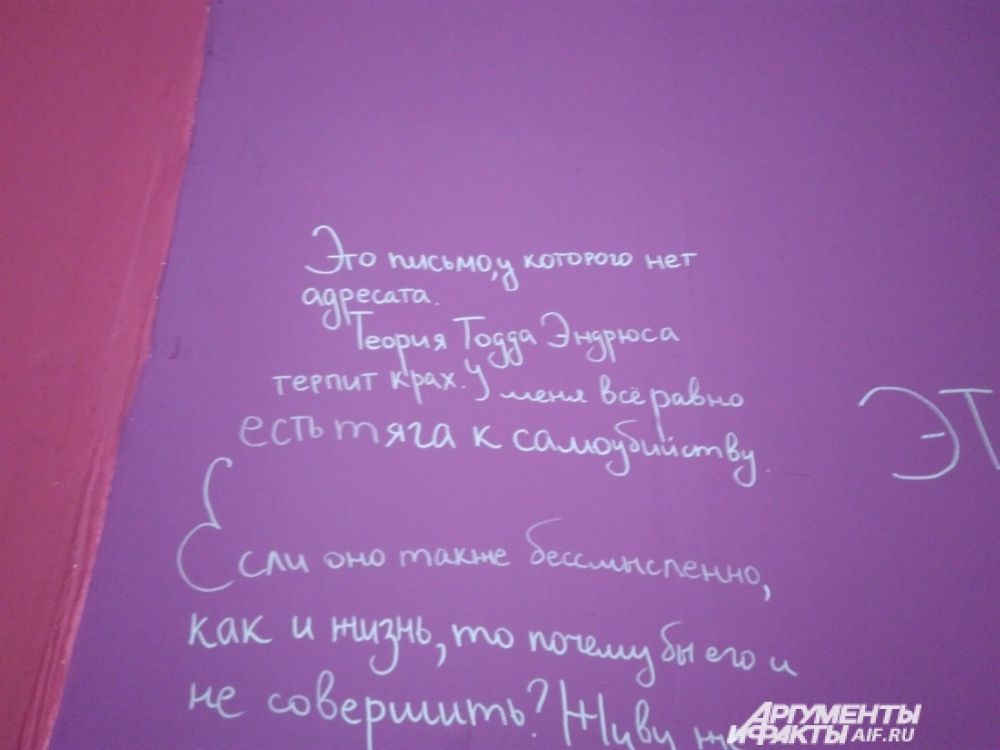 Это письмо, у которого нет
адресата.
Теория Тодда Эндрюса
терпит крах. У меня всё равно
есть тяга к самоубийству.
ЭТ
Если оно также бессмысленно,
как и жизнь, то почему бы его и
не совершить? Живу же
АРГУМЕНТЫ
И ФАКТЫ AIF.RU